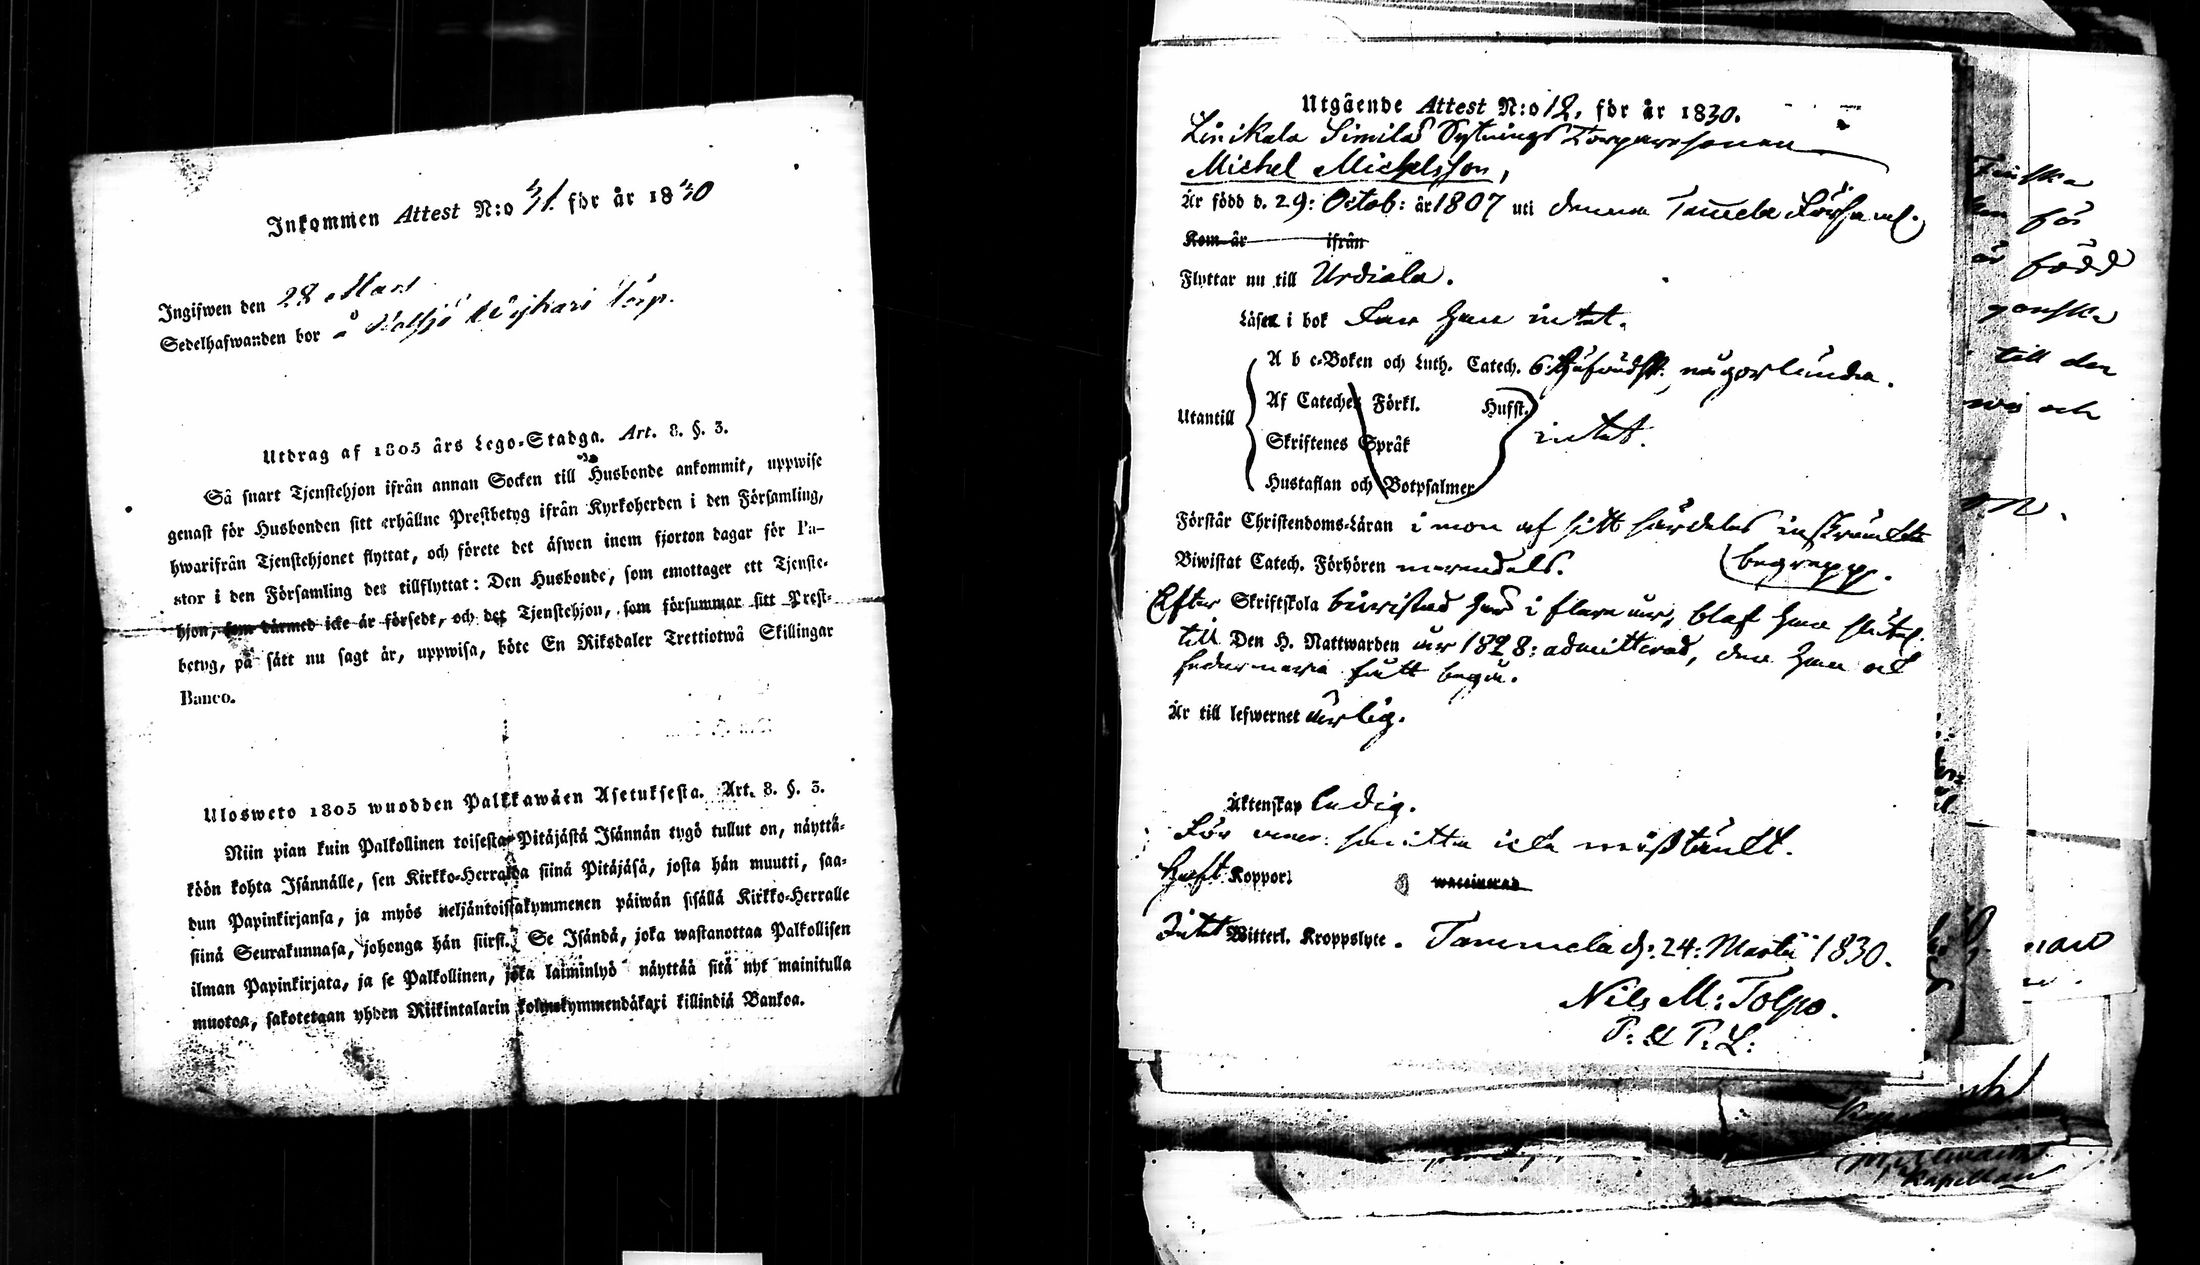 Inkommen Attest N:o 31. för år 1830
Ingifwen den 28 Mars
Sedelhafwanden bor å Torp.
Utdrag af 1805 års Lego-Stadga. Art. 8. §. 3.
Så snart Tjenstehjon ifrån annan Socken till Husbonde ankommit, uppwise
genast för Husbonden sitt erhållne Prestbetyg ifrån Kyrkoherden i den Församling,
hwarifrån Tjenstehjonet flyttat, och förete det äfwen inom fjorton dagar för Pa-
stor i den Församling det tillflyttat: Den Husbonde, som emottager ett Tjenste-
hjon, som därmed icke är försedt, och det Tjenstehjon, som försummar sitt Prest-
betyg, på sätt nu sagt är, uppwisa, böte En Riksdaler Trettiotwå Skillingar
Banco.
Ulosweto 1805 wuodden Palkkawäen Asetuksesta. Art. 8. §. 3.
Niin pian kuin Palkollinen toisesta Pitäjästä Isännän tygö tullut on, näyttä-
köön kohta Isännälle, sen Kirkko-Herralda siinä Pitäjäsä, josta hän muutti, saa-
dun Papinkirjansa, ja myös neljäntoistakymmenen päiwän sisällä Kirkko-Herralle
siinä Seurakunnasa, johonga hän siirst. Se Isändä, joka wastanottaa Palkollisen
ilman Papinkirjata, ja se Palkollinen, joka laiminlyö näyttää sitä nyt mainitulla
muotoa, sakotetaan yhden Riikintalarin kolmekymmendäkaxi killindiä Bankoa.
Utgående Attest N:o 12. för år 1830.
Liikala Simila Sytnings Torparesonen
Michel Michelsson,
Är född d. 29: Octob: år 1807 uti denna Tammela Församl.
Kom år ifrån
Flyttar nu till Urdiala.
Läsa i bok kan han intet.
A b c-Boken och Luth. Catech. 6 någorlunda.
Utantill
Af Cateches Förkl. Hufst.
Skriftenes Språk intet.
Hustaflan och Botpsalmer
Förstår Christendoms-Läran i mon af sitt särdeles inskränkta
begrepp.
Biwistat Catech. Förhören merendels.
Efter Skriftskola biwistad i flera år, blef han slutel.
till Den H. Nattwarden år 1828: admitterad, den han ock
sedermera fått begå.
Är till lefwernet ärlig.
Äktenskap ledig.
För vener: smitta icke misstänkt.
haft Koppor. waccinerad
Intet Witterl. Kroppslyte. Tammela d: 24: Martii 1830.
Nils M: Tolpo.
P: & P: L:
för
född
ganska
till den
och
Kapellan